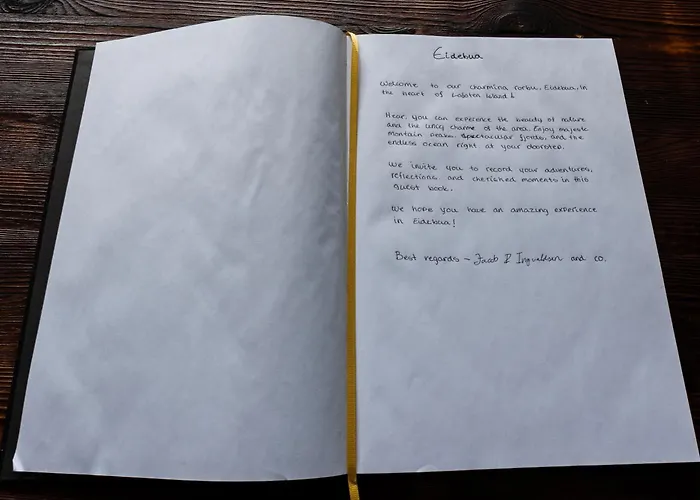 Eidebua
Welcome to our charming rorbu, Eidebua, in
the heart of Lofoten Island!
Hear, you can experience the beauty of nature
and the uniq charme of the area. Enjoy majestic
montain peaks, spectacular fjords, and the
endless ocean right at your doorstep.
We invite you to record your adventures,
reflections and cherished moments in this
guest book.
We hope you have an amazing experience
in Eidebua!
Best regards - Jacob Ingvaldsen and co.